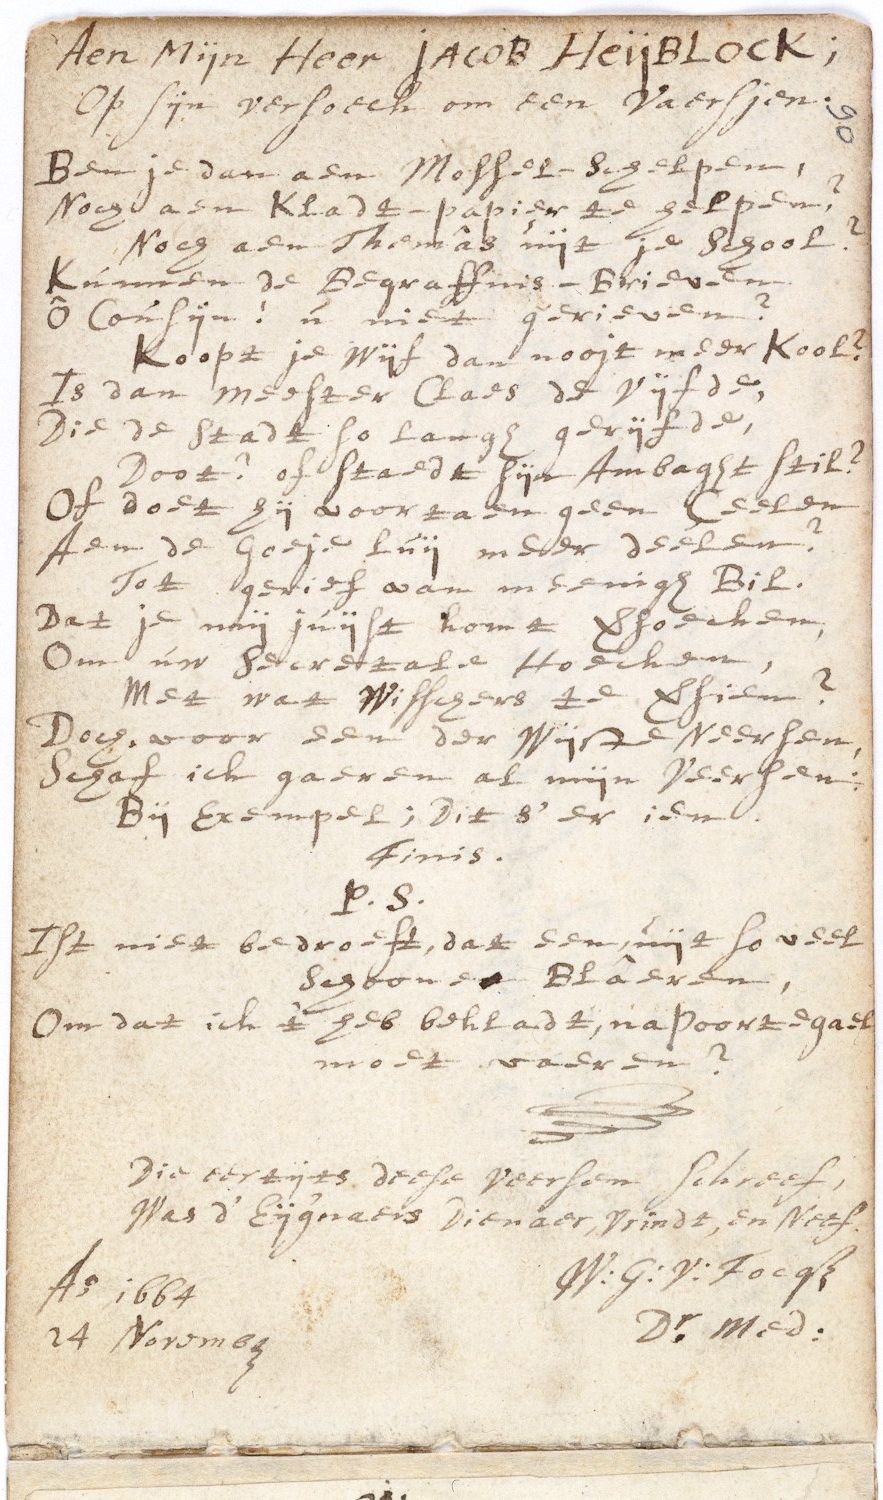 Aen Mijn Heer JACOB HeijBLOCK;
Op sijn versoeck om een Vaersjen.
90
Ben je dan aen Mossel-Schelpen,
Noch aen Kladt-papier te helpen?
Noch aen Themâs úijt je School?
Kúnnen de Begraffnis-Brieven
Ô Coúsijn! ú niet gerieven?
Koopt je Wijf dan noojt meer Kool?
Is dan Meester Claes de Vijfde,
Die de Stadt so langh gerijfde,
Doot? of staedt sijn Ambaght stil?
Of doet hij voortaen geen Ceelen
Aen de Goeje lúij meer deelen?
Tot gerief van meenigh Bil.
Dat je mij júijst komt
Om úw Secretale Hoecken,
Met wat Wisschers te
Doch, voor een der Wijste Neersen,
Schaf ick gaeren al mijn Veersen:
Bij Exempel; Dit s'er ien.
Finis.
P. S.
Ist niet bedroeft, dat een, úijt so veel
Schoone Blâeren,
Om dat ick 't heb bekladt, na Poortegael
moet vaeren?
Die eertijts deese Veersen schreef,
Was d' Eijgnaers Dienaer, Vrindt, en Neef.
W: G: V: Focqh
Dr. Med:
Ao 1664
24 Novemb